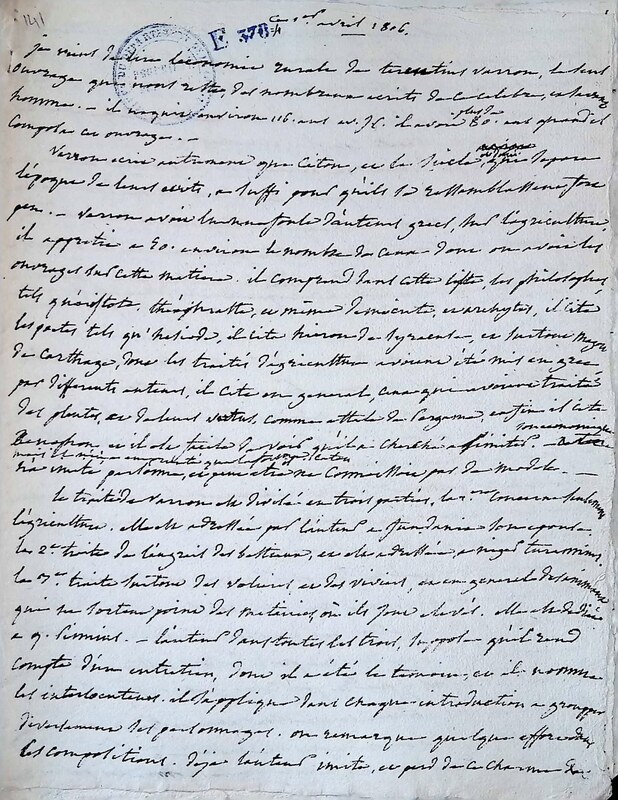 141
E 378
ce 1er avril 1806.
je viens de lire l'economie rurale de terentius varron, le seul
ouvrage qui nous reste, des nombreux ecrits de ce celebre, et savant
homme. - il naquit environ 116. ans av. J.C. il avoit plus de 80. ans quand il
composa cet ouvrage. -
Varron ecrit autrement que Caton, et le siecle qui separa
l'époque de leurs ecrits, a suffi pour qu'ils se ressemblassent fort
peu. - Varron avoit lu une foule d'auteurs grecs, sur l'agriculture,
il apprecie a 50. environ le nombre de ceux dont on avoit les
ouvrages sur cette matiere. il comprend dans cette liste, les philosophes
tels qu'aristote, théophraste, et même démocrite, et archytas, il cite
les poetes tels qu'hesiode, il cite hieron de syracuse, et surtout Magon
de Carthage, dont les traités d'agriculture avoient été mis en grec
par differents auteurs, il cite en general, ceux qui avoient traité
des plantes, et de leurs vertus, comme attale de Pergame, enfin il cite
Xenophon, et il est facile de voir qu'il a cherché a imiter son economique
mais il
n'a imité personne, et peut etre ne connoissoit pas de modele. -
le traité de Varron est divisé en trois parties, la 1ere concerne seulement
l'agriculture. elle est adressée par l'auteur a fundania son epouse.
la 2e traite de l'engrais des bestiaux, et est adressée a niger turranius.
la 3e traite surtout des volieres, et des viviers, et en general des animaux
qui ne sortent point des metairies, où ils sont elevés. elle est dediée
a q. Pinnius. - l'auteur dans toutes les trois, suppose qu'il rend
compte d'un entretien, dont il a été le temoin, et il nomme
les interlocuteurs. il s'applique dans chaque introduction a grouper
diversement ses personnages. on remarque quelque effort dans
les compositions. déja l'auteur imite, et perd de ce charme